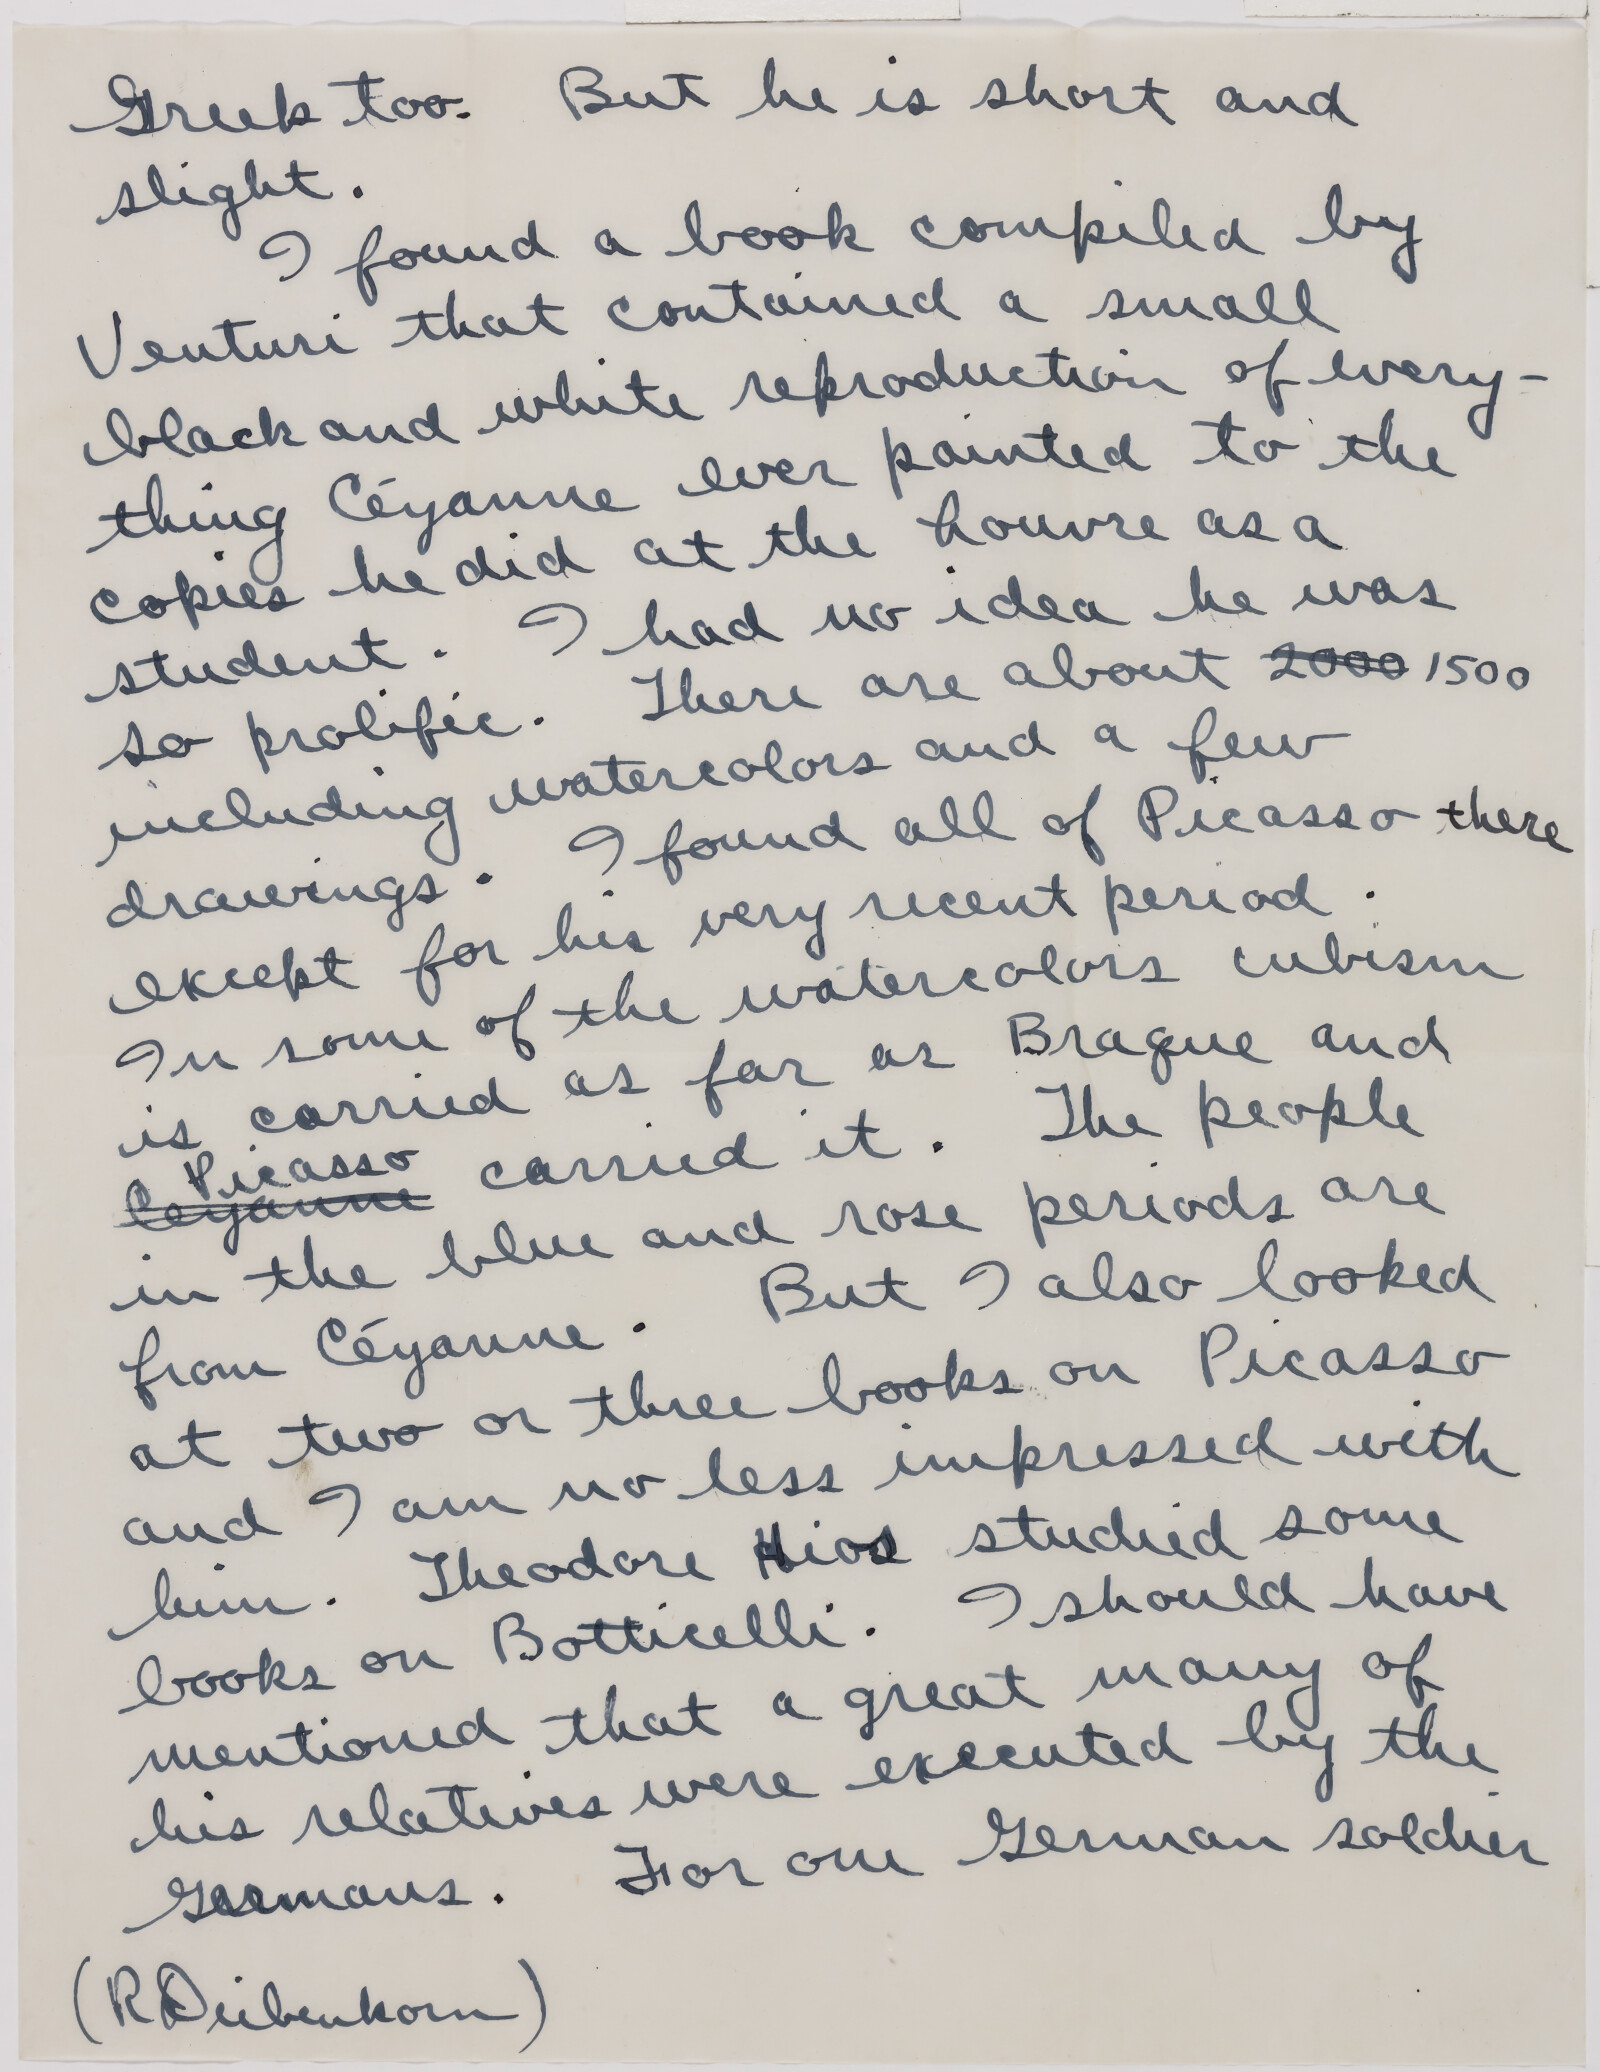 Greek too. But he is short and
slight.
I found a book compiled by
Venturi that contained a small
black and white reproduction of every-
thing Cézanne ever painted to the
copies he did at the Louvre as a
student. I had no idea he was
so prolific. There are about 2000 1500
including watercolors and a few
drawings. I found all of Picasso there
except for his very recent period.
In some of the watercolors cubism
is carried as far as Braque and
Picasso
Cezanne carried it. The people
in the blue and rose periods are
from Cézanne. But I also looked
at two or three books on Picasso
and I am no less impressed with
him. Theodore Hios studied some
books on Botticelli. I should have
mentioned that a great many of
his relatives were executed by the
Germans. For one German soldier
(R Deibenkorn)